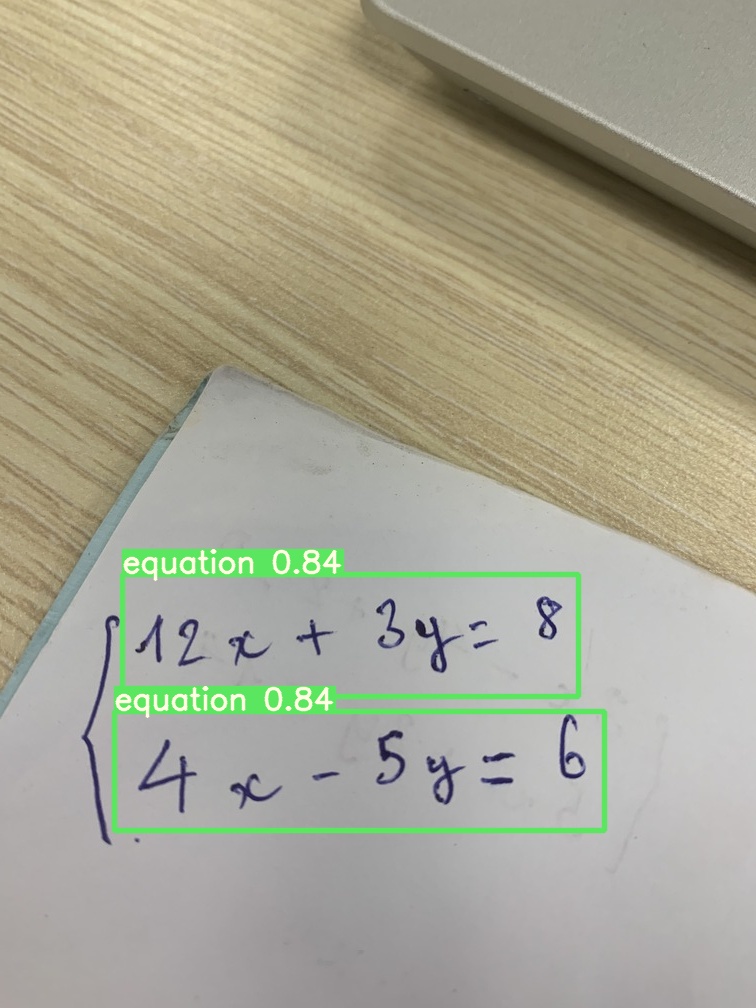 equation 0.84
12x + 3y = 8
equation 0.84
4x - 5y = 6